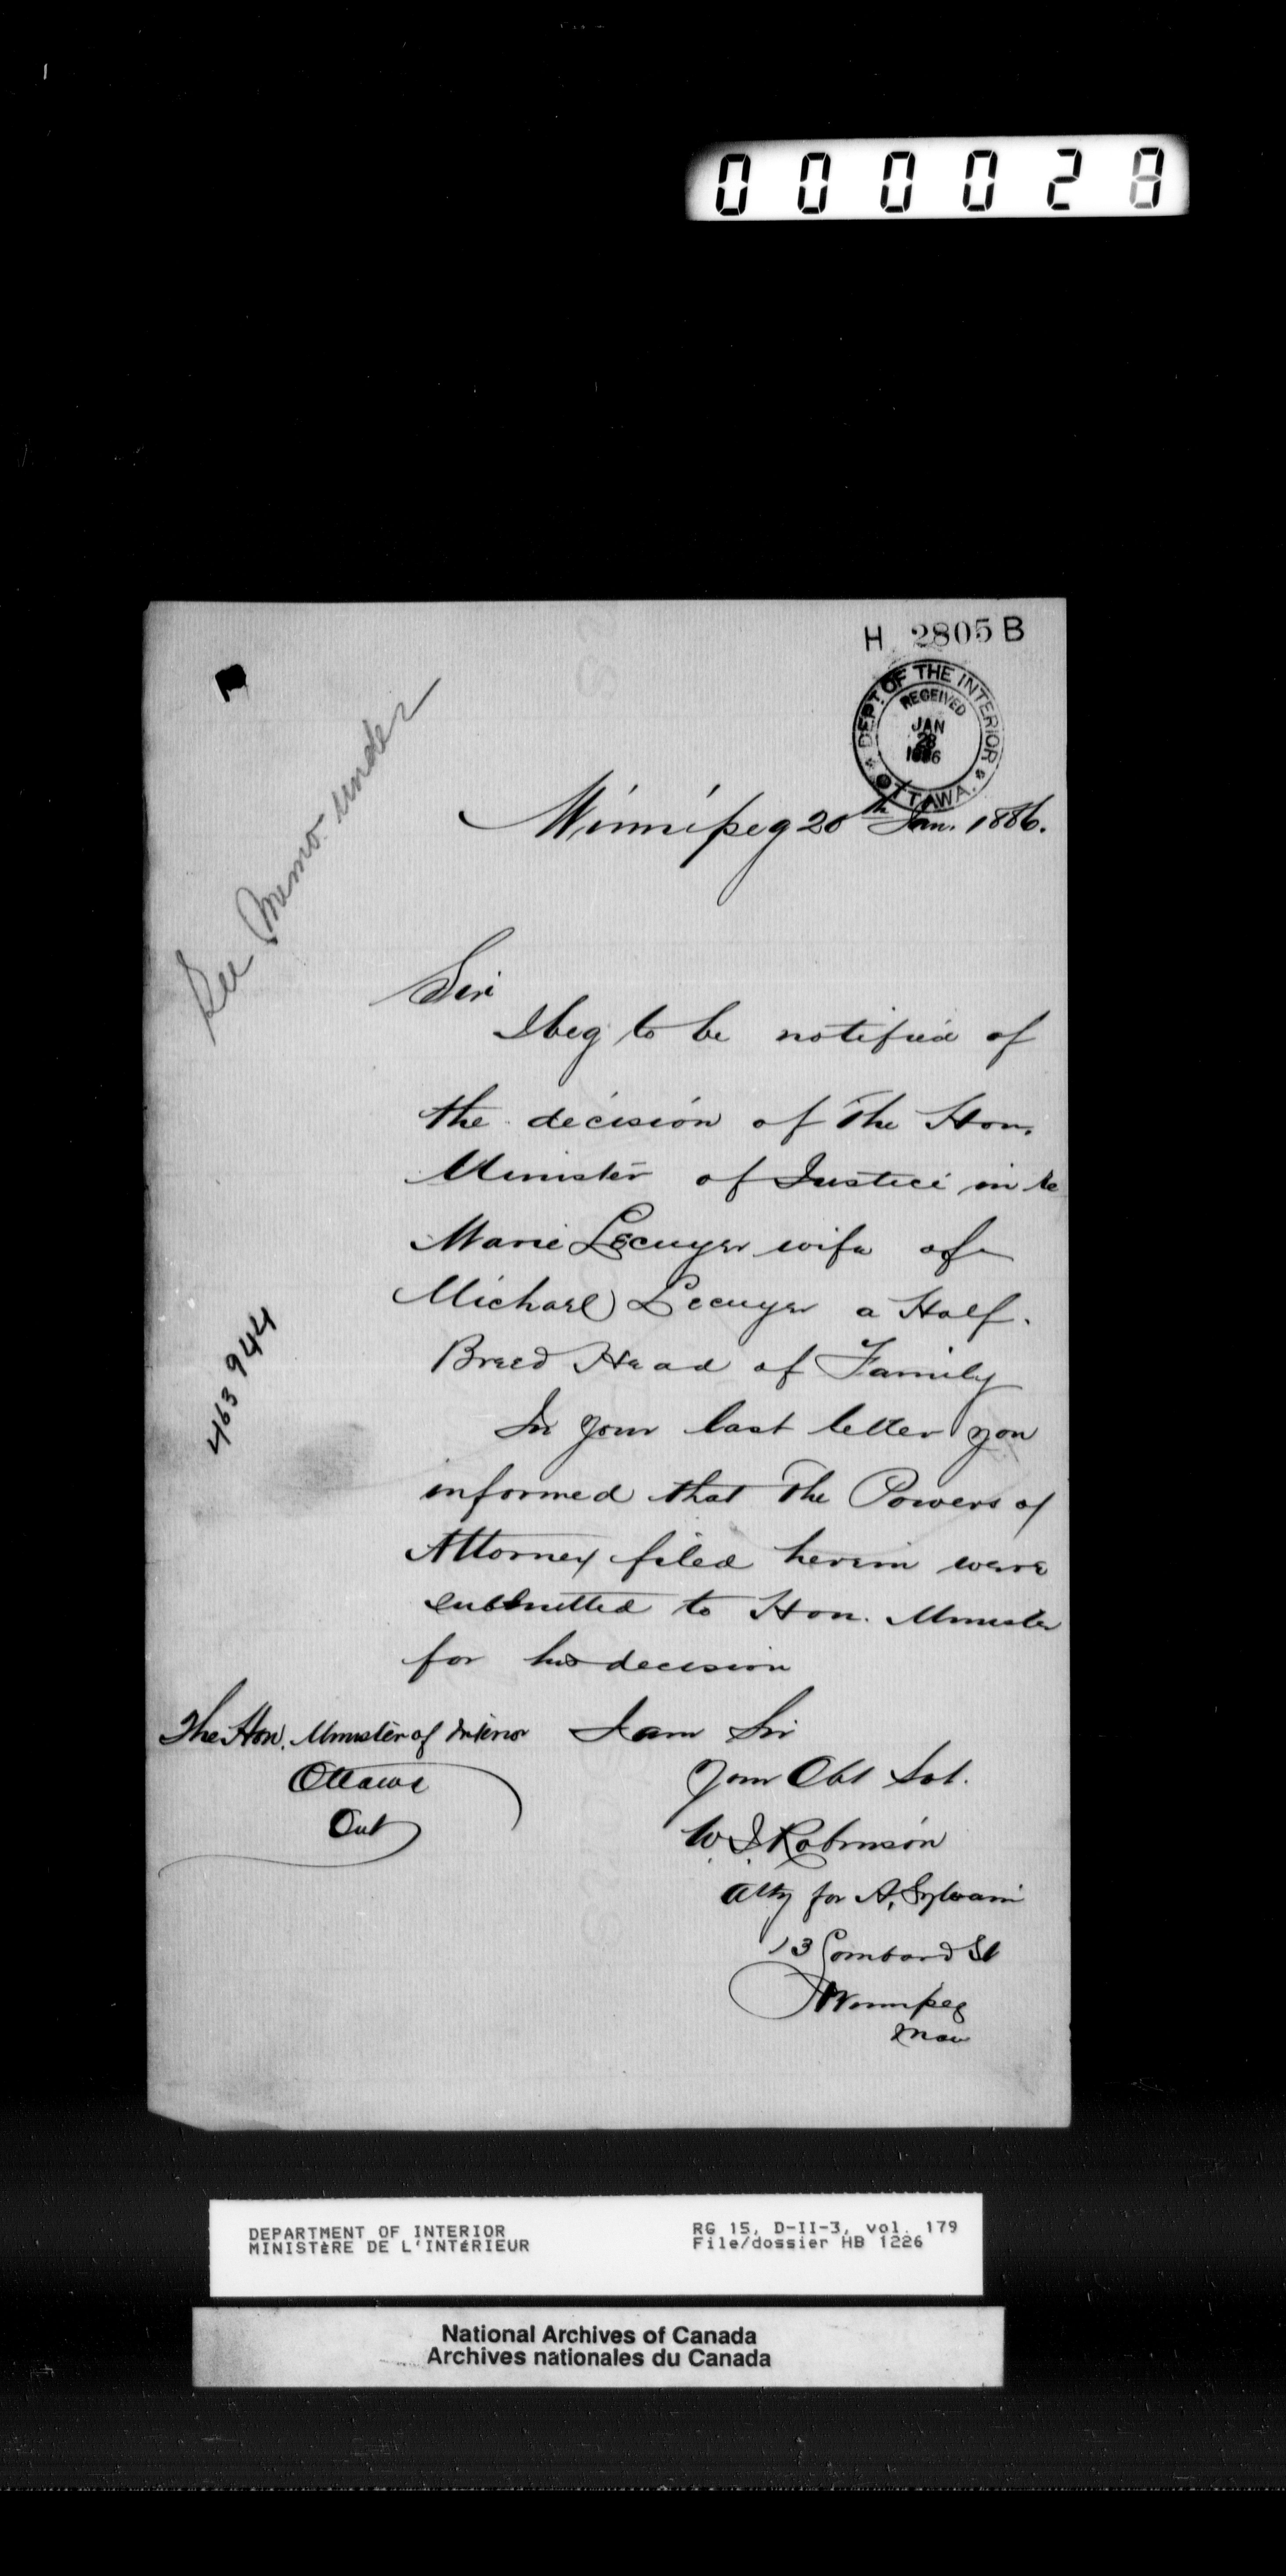 000028
H 2805 B
DEPT. OF THE INTERIOR
RECEIVED
JAN
28
1886
OTTAWA.
See Memo. under
Winnipeg 20th Jan. 1886.
Sir
I beg to be notified of
the decision of The Hon.
Minister of Justice in re
Marie Lecuyer wife of
Michael Lecuyer a Half-
Breed Head of Family
In your last letter you
informed that The Powers of
Attorney filed herein were
submitted to Hon. Minister
for his decision
463944
I am Sir
Your Obt Svt.
W. J. Robinson
Atty for A. Sylvain
13 Lombard St
Winnipeg
Man
The Hon. Minister of Interior
Ottawa
Ont
DEPARTMENT OF INTERIOR
MINISTÈRE DE L'INTÉRIEUR
RG 15, D-II-3, vol. 179
File/dossier HB 1226
National Archives of Canada
Archives nationales du Canada